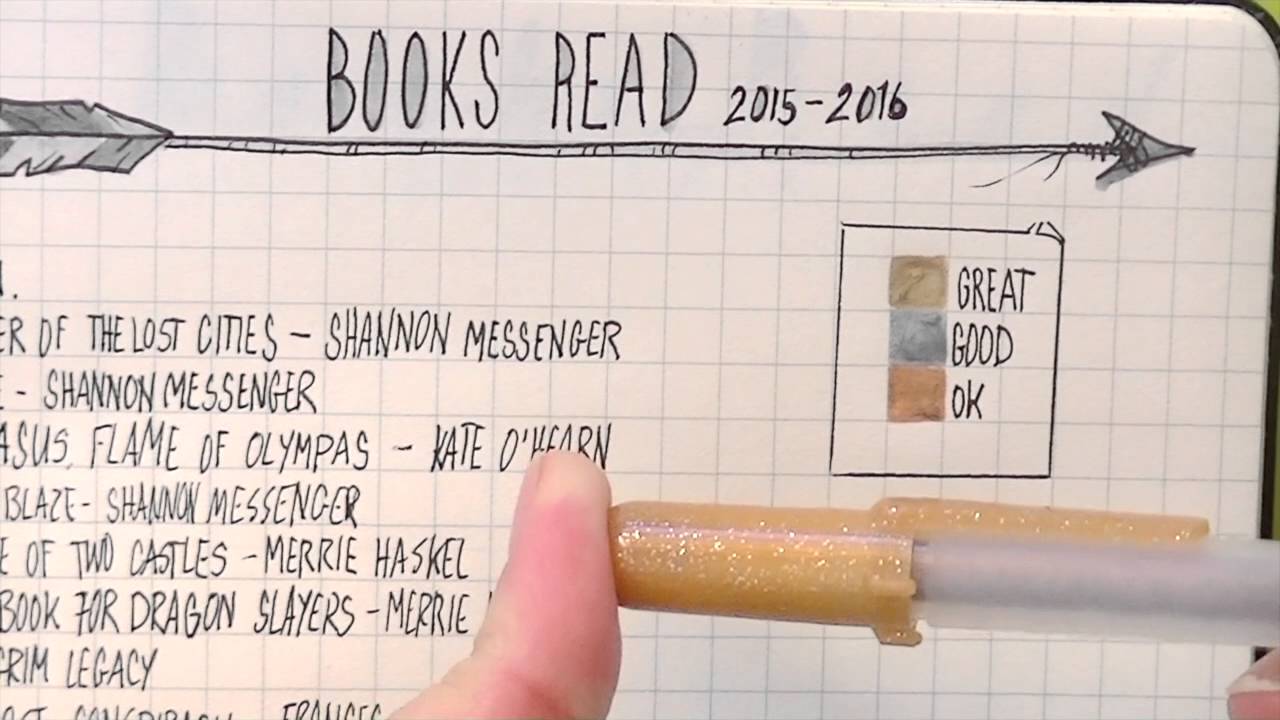 BOOKS READ 2015-2016
GREAT
GOOD
OK
ER OF THE LOST CITIES - SHANNON MESSENGER
- SHANNON MESSENGER
ASUS, FLAME OF OLYMPAS - KATE O'HEARN
BLAZE - SHANNON MESSENGER
E OF TWO CASTLES - MERRIE HASKEL
BOOK FOR DRAGON SLAYERS - MERRIE
GRIM LEGACY
CONSPIRACY FRANCES